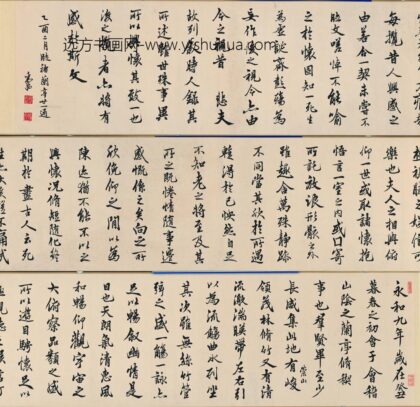 永和九年歲在癸丑
暮春之初會于會稽
山陰之蘭亭脩禊
事也群賢畢至少
長咸集此地有峻
崇山
領茂林脩竹又有清
流激湍暎帶左右引
以為流觴曲水列坐
其次雖無絲竹管
弦之盛一觴一詠亦
足以暢敘幽情是
日也天朗氣清惠風
和暢仰觀宇宙之
大俯察品類之盛
所以遊目騁懷足以
極視聽之娛信
也夫人之相與俯
仰一世或取諸懷抱
悟言一室之內或因寄
所託放浪形骸之外
雖趣舍萬殊靜躁
不同當其欣於所遇
暫得於己怏然自足
不知老之將至及其
所之既惓情隨事遷
感慨係之矣向之所
欣俛仰之閒以為
陳迹猶不能不以之
興懷況脩短隨化終
期於盡古人云死
生亦大矣豈不痛哉
每攬昔人興感之
由若合一契未嘗不
臨文嗟悼不能喻
之於懷固知一死生
為虛誕齊彭殤為
妄作後之視今亦由
今之視昔 悲夫
故列敘時人錄其
所述雖世殊事異
所以興懷其致一也
後之攬者亦將有
感於斯文
乙酉二月臨
远方书画网 www.yfshuhua.com